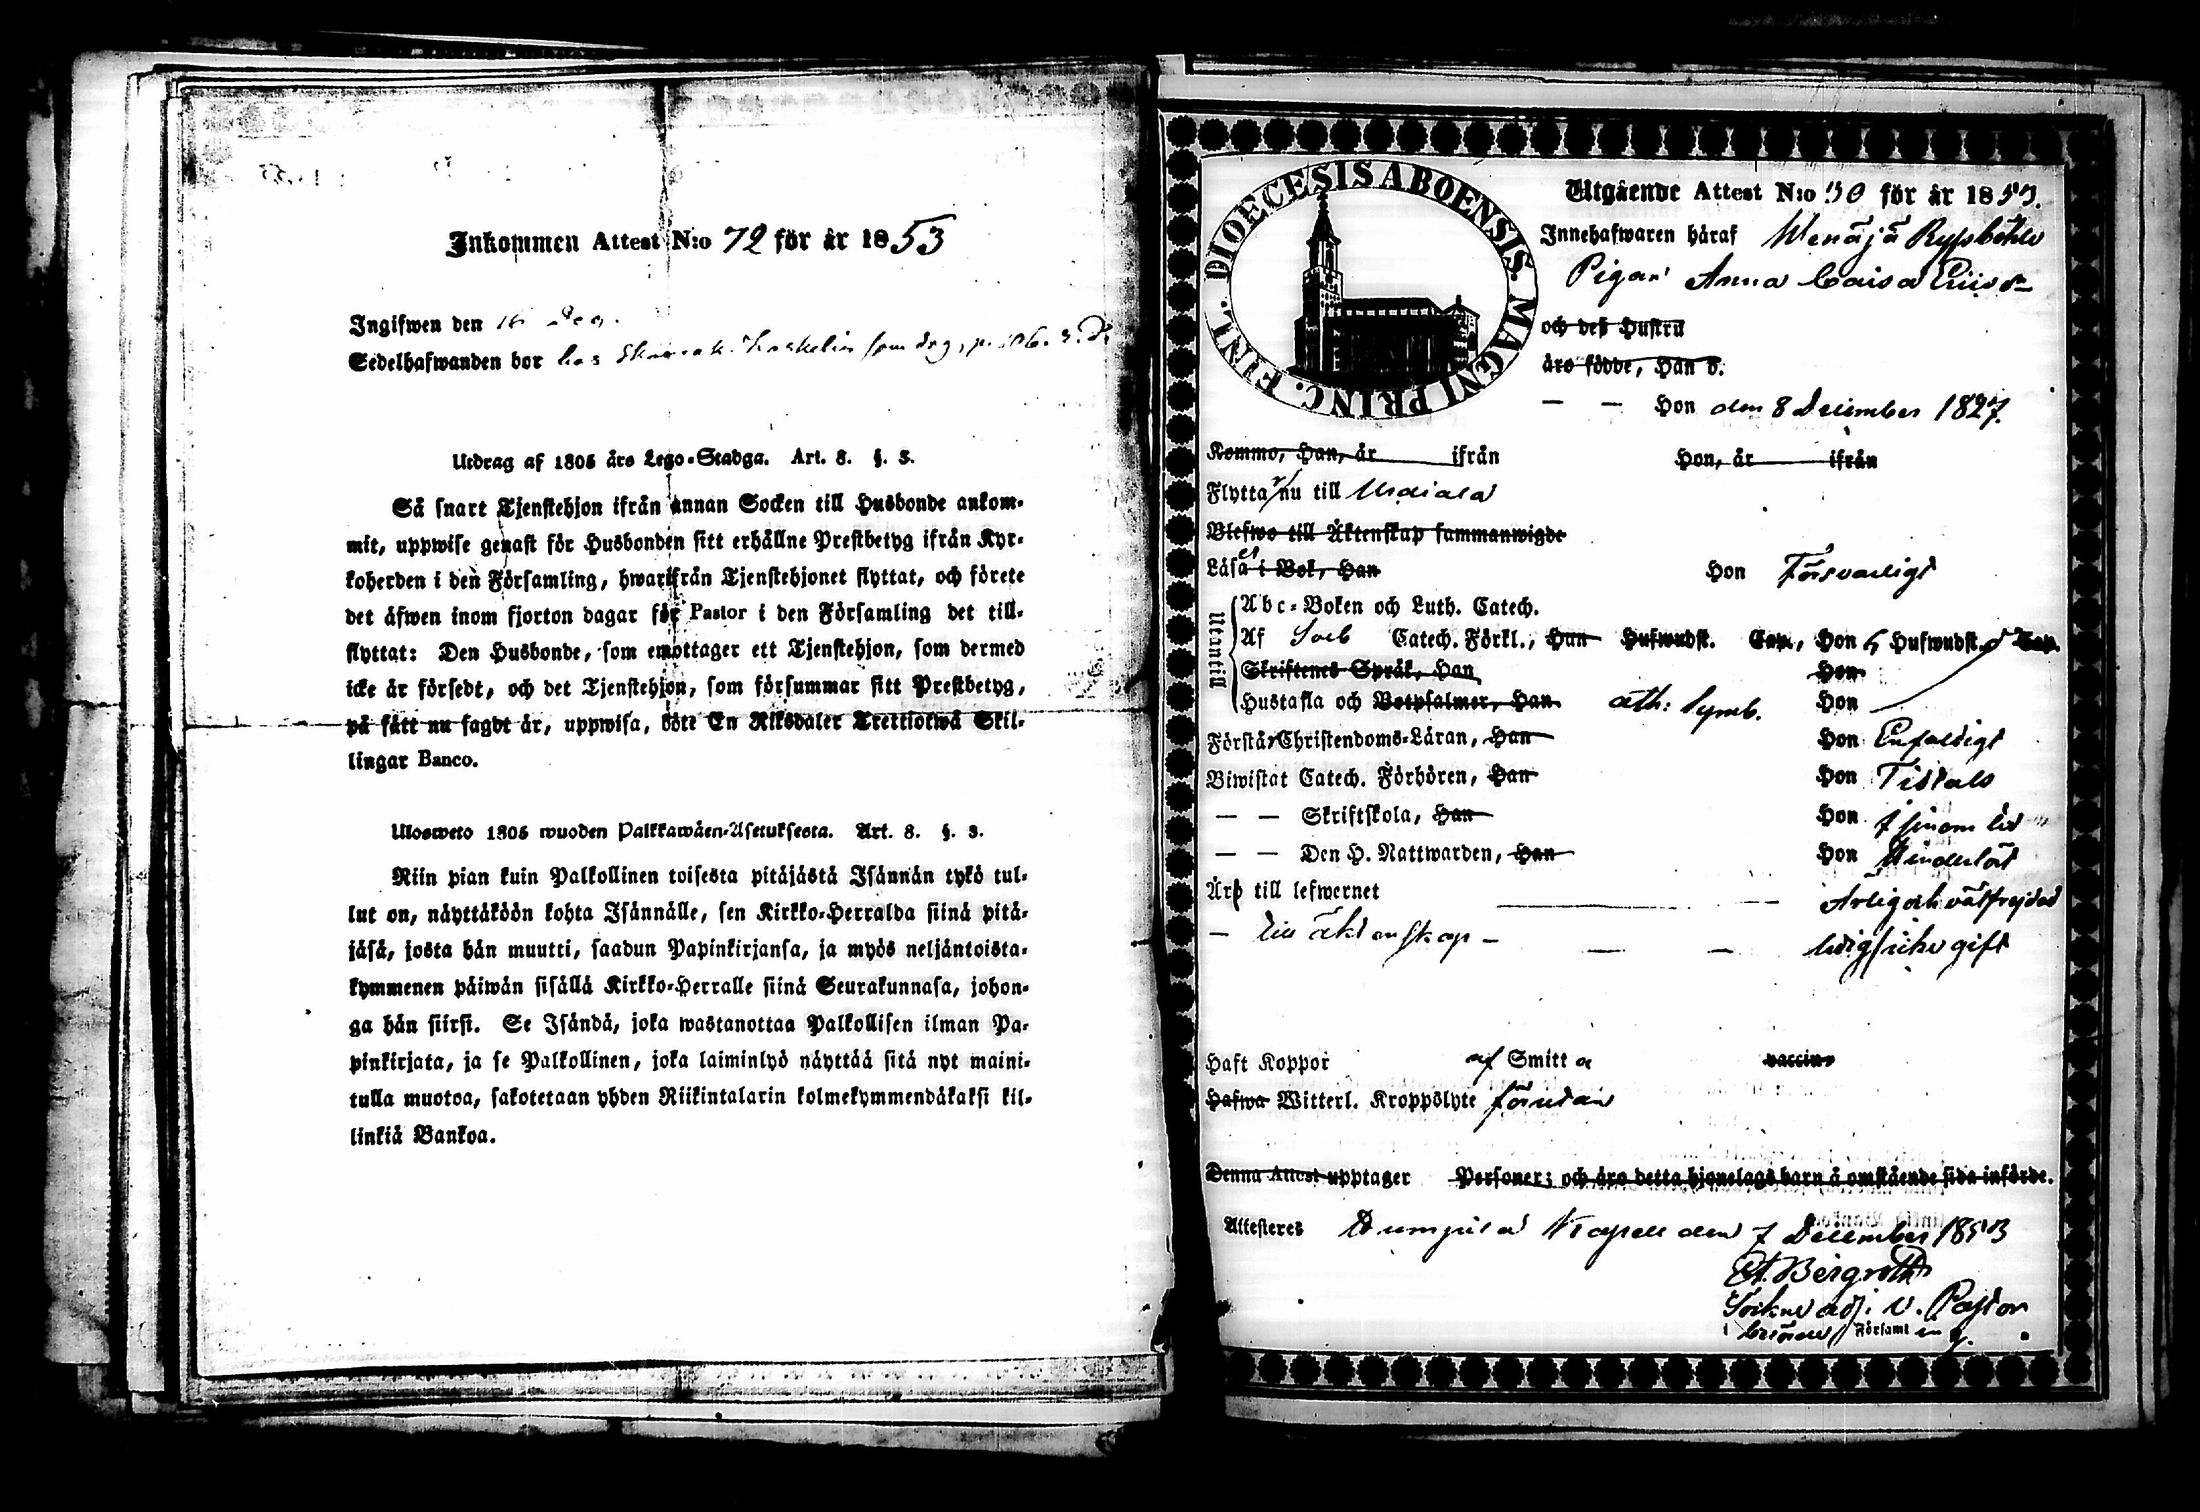 Inkommen Attest N:o 72 för år 1853
Ingifwen den 16 Dec.
Sedelhafwanden bor hos
Utdrag af 1805 års Lego-Stadga. Art. 8. §. 3.
Så snart Tjenstehjon ifrån annan Socken till Husbonde ankom-
mit, uppwise genast för Husbonden sitt erhållne Prestbetyg ifrån Kyr-
koherden i den Församling, hwarifrån Tjenstehjonet flyttat, och förete
det äfwen inom fjorton dagar för Pastor i den Församling det till-
flyttat: Den Husbonde, som emottager ett Tjenstehjon, som dermed
icke är försedt, och det Tjenstehjon, som försummar sitt Prestbetyg,
på sätt nu sagdt är, uppwisa, böte En Riksdaler Trettiotwå Skil-
lingar Banco.
Ulosweto 1805 wuoden Palkkawäen-Asetuksesta. Art. 8. §. 3.
Niin pian kuin Palkollinen toisesta pitäjästä Isännän tykö tul-
lut on, näyttäköön kohta Isännälle, sen Kirkko-Herralda siinä pitä-
jäsä, josta hän muutti, saadun Papinkirjansa, ja myös neljäntoista-
kymmenen päiwän sisällä Kirkko-Herralle siinä Seurakunnasa, johon-
ga hän siirsi. Se Isändä, joka wastanottaa Palkollisen ilman Pa-
pinkirjata, ja se Palkollinen, joka laiminlyö näyttää sitä nyt maini-
tulla muotoa, sakotetaan yhden Riikintalarin kolmekymmendäkaksi kil-
linkiä Bankoa.
DIOECESIS ABOENSIS. MAGNI PRINC. FINL.
Utgående Attest N:o 30 för år 1853.
Innehafwaren häraf
Pigan Anna Caisa
och deß Hustru
äro födde, Han d.
— — Hon den 8 December 1827.
Kommo, Han, år ifrån Hon, år ifrån
Flytta r nu till Urdiala
Blefwo till Äktenskap sammanwigde
Läsa i Bok, Han Hon Försvarligt
Utantill
Abc-Boken och Luth. Catech.
Af Catech. Förkl., Han Hufwudst. Cap., Hon 5 Hufwudst. Cap.
Skriftenes Språk, Han Hon
Hustafla och Botpsalmer, Han ath: Symb. Hon
Förstå Christendoms-Läran, Han Hon Enfaldigt
Biwistat Catech. Förhören, Han Hon
— — Skriftskola, Han Hon
— — Den H. Nattwarden, Han Hon
Äro till lefwernet — Ärlig och välfrejdad
— till äktenskap — — —
Haft Koppor af Smitt a vaccin
Hafwa Witterl. Kroppslyte förutan
Denna Attest upptager Personer; och äro detta hjonelags barn å omstående sida införde.
Attesteres Kumpila Kapell den 7 December 1853
Bergroth
adj. v. Pastor
i Församl ing.